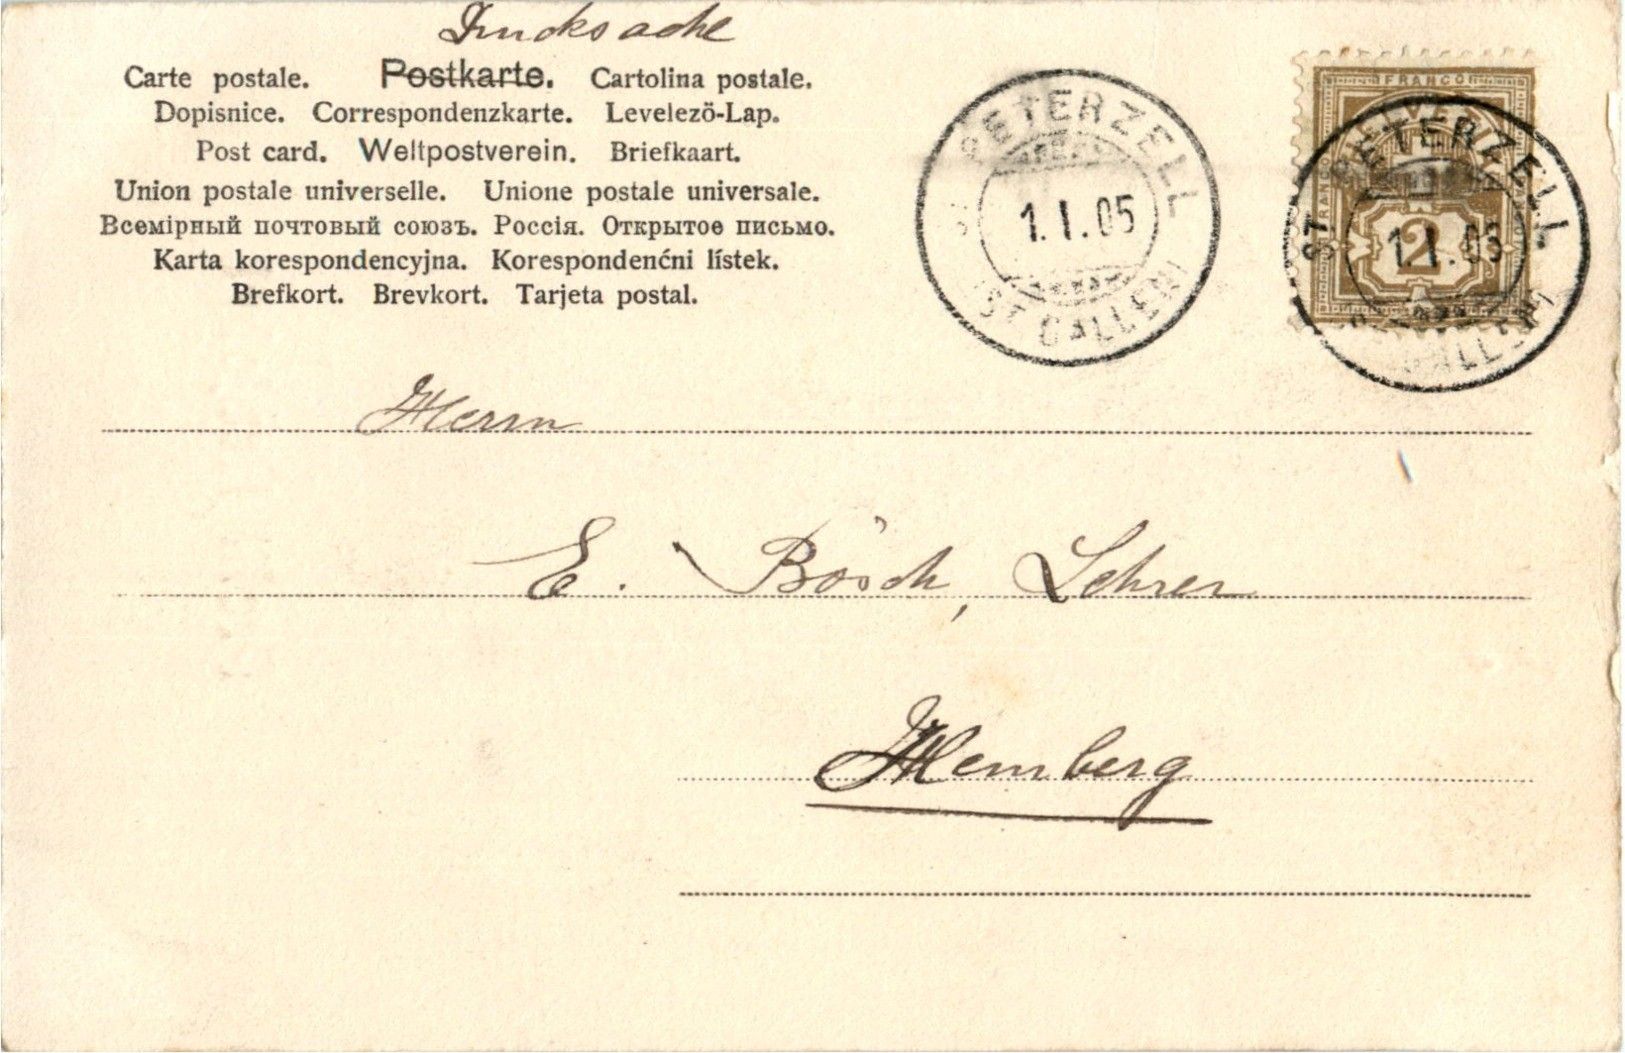 Drucksache
Carte postale. Postkarte. Cartolina postale.
Dopisnice. Correspondenzkarte. Levelező-Lap.
Post card. Weltpostverein. Briefkaart.
Union postale universelle. Unione postale universale.
Всемірный почтовый союзъ. Россія. Открытое письмо.
Karta korespondencyjna. Korespondenćni lístek.
Brefkort. Brevkort. Tarjeta postal.
ST. PETERZELL
1.I.05
(ST. GALLEN)
FRANCO
HELVETIA
FRANCO
2
ST. PETERZELL
1.I.05
(ST. GALLEN)
Herrn
E. Bösch, Lehrer
Hemberg